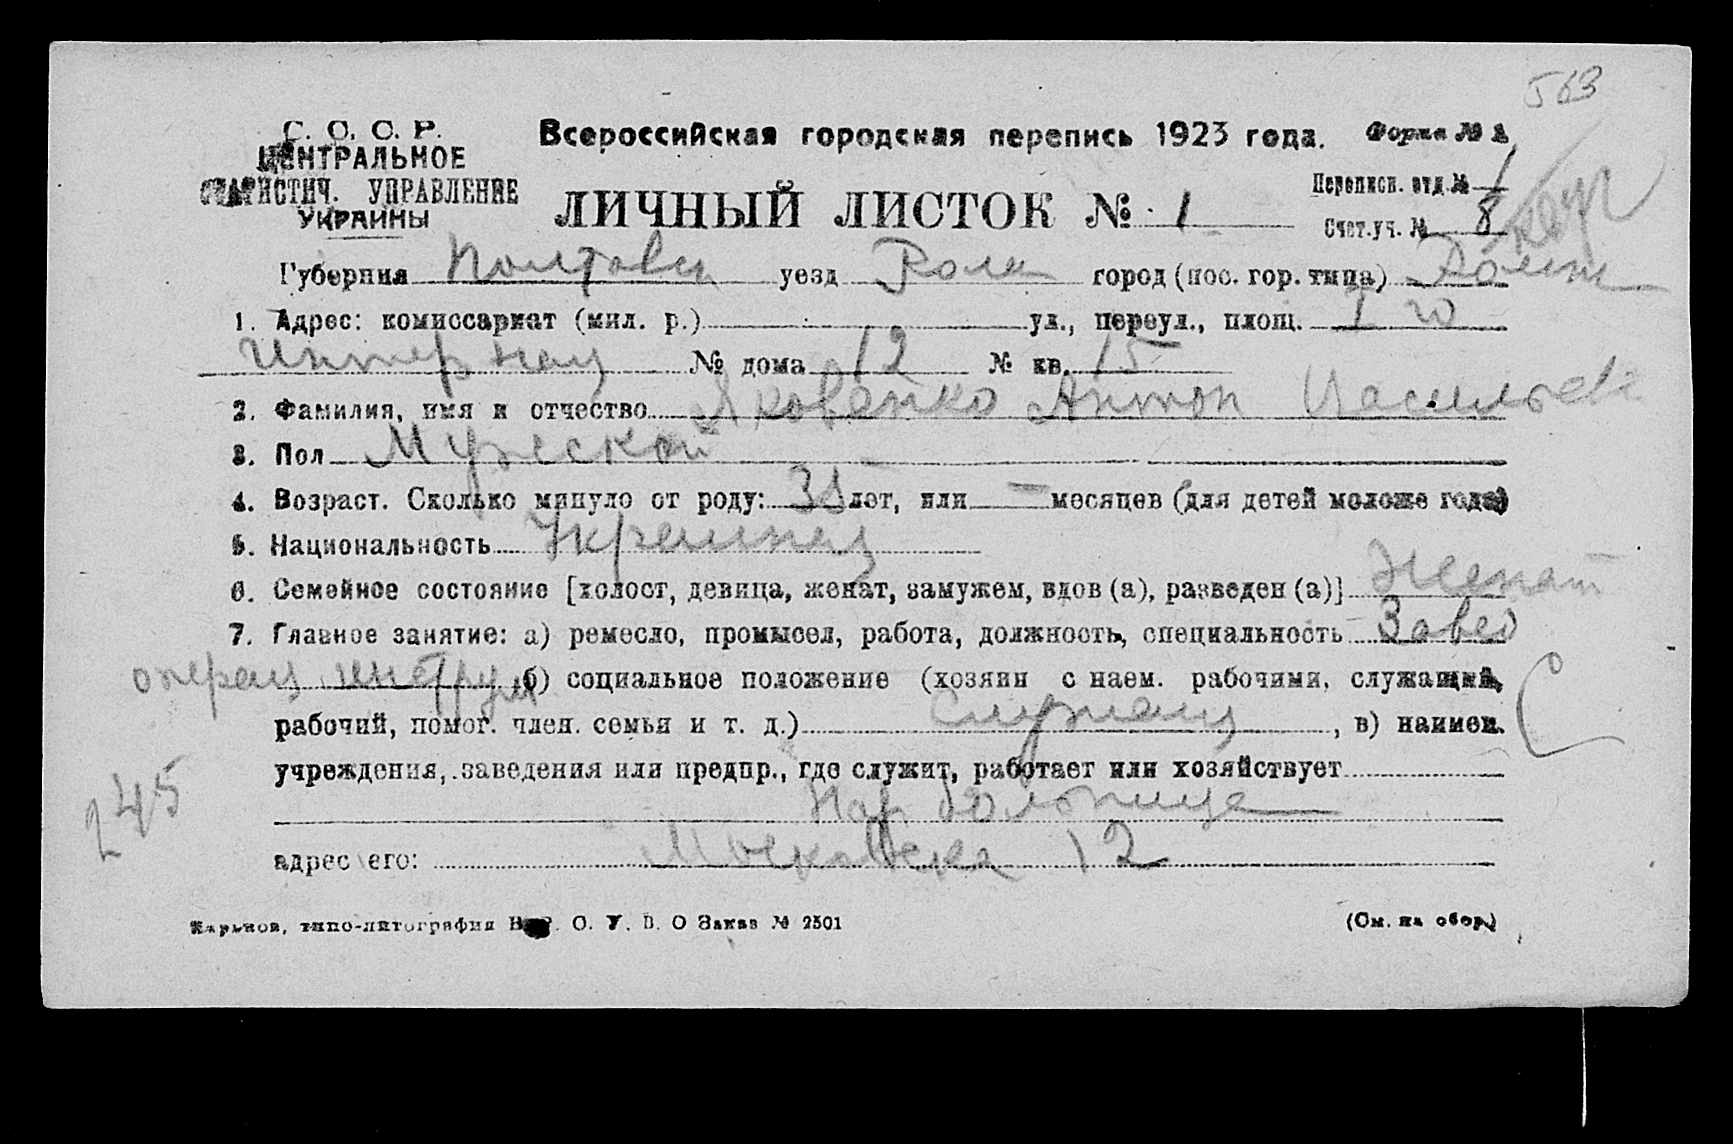 563
С. С. С. Р.
ЦЕНТРАЛЬНОЕ
СТАТИСТИЧ. УПРАВЛЕНИЕ
УКРАИНЫ
Всероссийская городская перепись 1923 года. Форма № 1
ЛИЧНЫЙ ЛИСТОК № 1
Переписн. отд. № 1
Счет. уч. № 8
Губерния Полтавск уезд город (пос. гор. типа)
1. Адрес: комиссариат (мил. р.) ул., переул., площ. 1 го
Интернац № дома 12 № кв. 15
2. Фамилия, имя и отчество Яковенко Антон Васильев
3. Пол Мужеской
4. Возраст. Сколько минуло от роду: лет, или — месяцев (для детей моложе года)
5. Национальность Украинец
6. Семейное состояние [холост, девица, женат, замужем, вдов (а), разведен (а)] Женат
7. Главное занятие: а) ремесло, промысел, работа, должность, специальность Завед
операц инструм б) социальное положение (хозяин с наем. рабочими, служащий,
рабочий, помог. член. семьи и т. д.) Служащ, в) наимен.
учреждения, заведения или предпр., где служит, работает или хозяйствует
Нар больница
245
адрес его: Московска 12
Харьков, типо-литография О. Заказ № 2501 (См. на обор.)